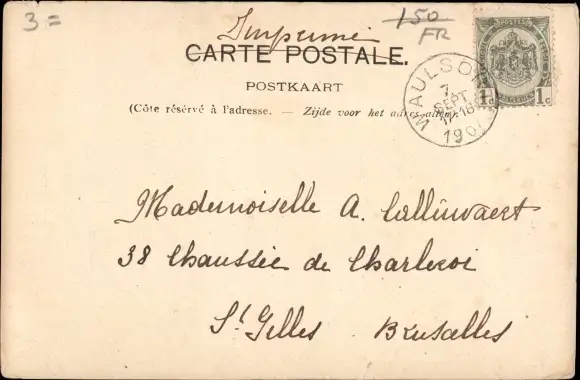 3 =
Imprimé
150
FR
CARTE POSTALE.
POSTKAART
(Côte réservé à l'adresse. — Zijde voor het adres alleen).
POSTES
WAULSORT
7
SEPT
17-18
190
1c 1c
Mademoiselle A. Callewaert
38 Chaussée de Charleroi
St Gilles Bruxelles